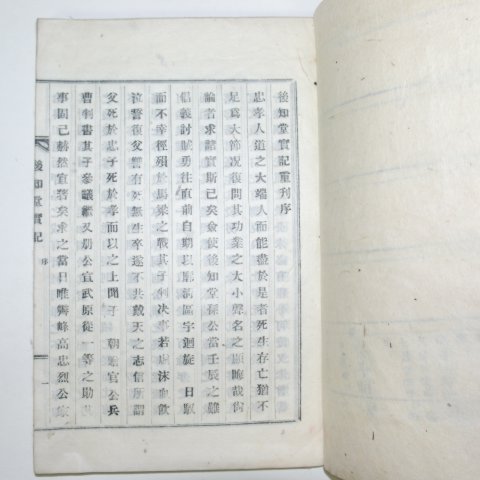 後知堂實記重刊序
忠孝人道之大端人而能盡於是者死生存亡猶不
足爲大節况復問其功業之大小聲名之顯晦哉尙
論者求諸實斯已矣僉使後知堂孫公當壬辰之難
倡義討賊勇往直前自期以廓淸區宇迴旋日馭
而不幸徑殞於馬梁之戰其子判决事若虛沫血飮
泣誓復父讐有死無生卒遂不共戴天之志信所謂
父死於忠子死於孝而以之上聞于 朝贈官公兵
曹判書其子參議繼又勘公宣武原從一等之勛
事固已赫然宣著矣求之當日唯霽峰高忠烈公
後知堂實記 序 一